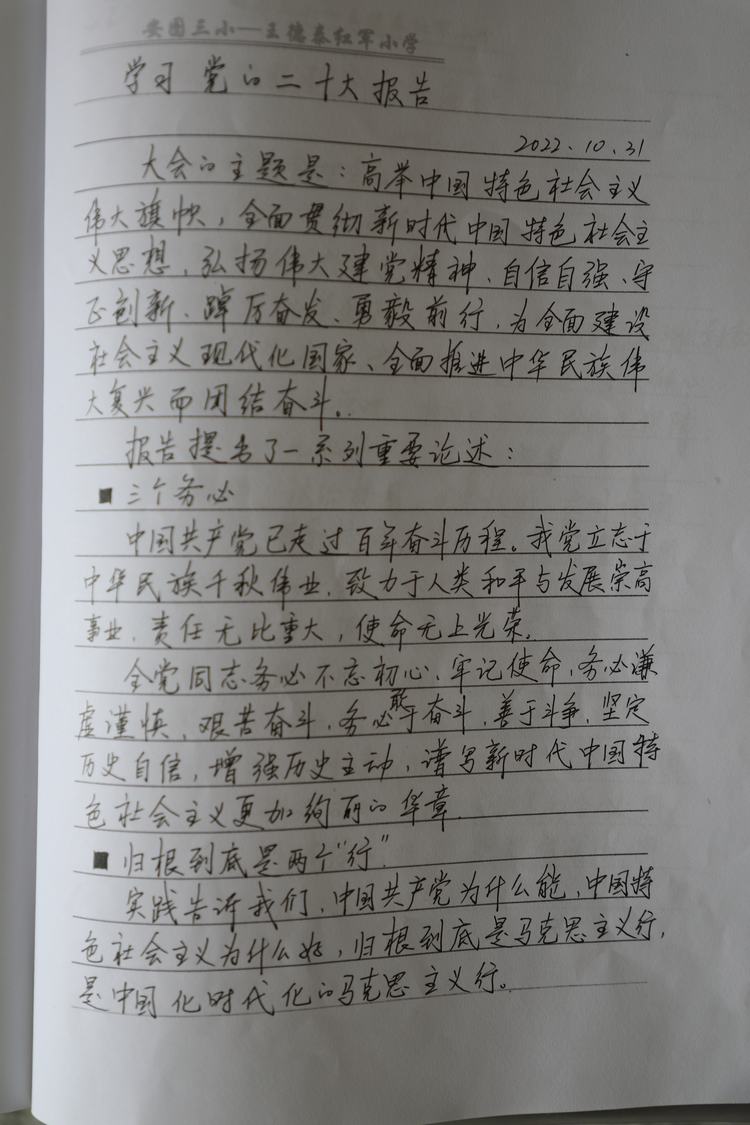 安图三小一王德泰红军小学
学习党的二十大报告
2022.10.31
大会的主题是：高举中国特色社会主义
伟大旗帜，全面贯彻新时代中国特色社会主
义思想，弘扬伟大建党精神、自信自强、守
正创新、踔厉奋发、勇毅前行，为全面建设
社会主义现代化国家、全面推进中华民族伟
大复兴而团结奋斗。
报告提出了一系列重要论述：
■三个务必
中国共产党已走过百年奋斗历程。我党立志于
中华民族千秋伟业，致力于人类和平与发展崇高
事业，责任无比重大，使命无上光荣。
全党同志务必不忘初心、牢记使命，务必谦
虚谨慎，艰苦奋斗，务必敢于奋斗，善于斗争，坚定
历史自信，增强历史主动，谱写新时代中国特
色社会主义更加绚丽的华章.
■归根到底是两个“行”
实践告诉我们，中国共产党为什么能，中国特
色社会主义为什么好，归根到底是马克思主义行，
是中国化时代化的马克思主义行。